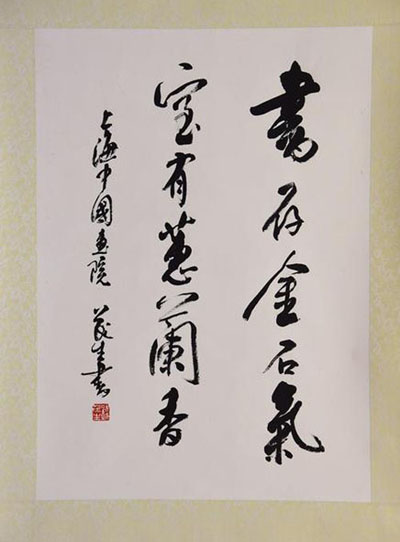 書存金石氣
室有蕙蘭香
上海中國畫院 書